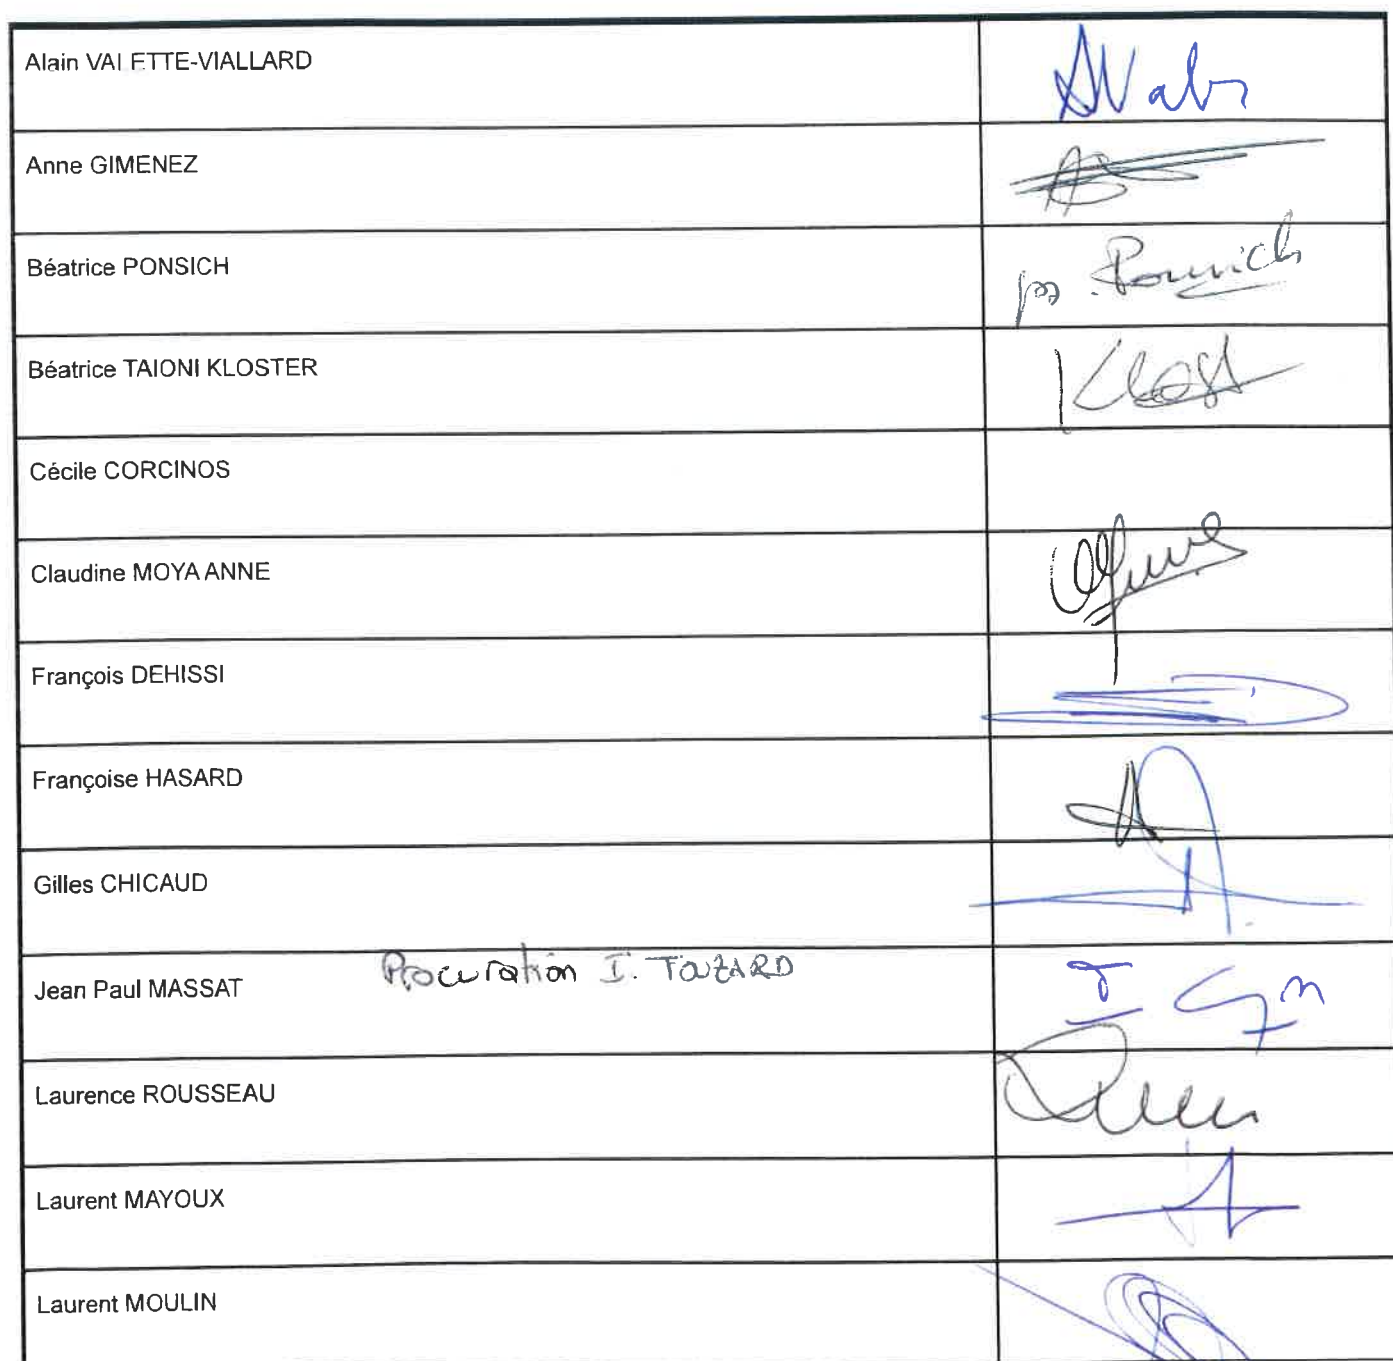 Alain VALETTE-VIALLARD
Anne GIMENEZ
Béatrice PONSICH
po. Ponsich
Béatrice TAIONI KLOSTER
Klost
Cécile CORCINOS
Claudine MOYA ANNE
François DEHISSI
Françoise HASARD
Gilles CHICAUD
Jean Paul MASSAT Procuration I. TOUZARD
Laurence ROUSSEAU
Laurent MAYOUX
Laurent MOULIN